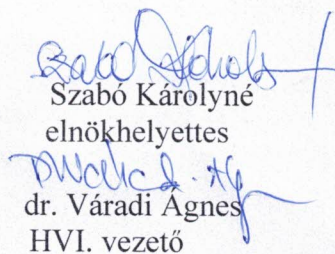 Szabó Károlyné
elnökhelyettes
dr. Váradi Ágnes
HVI. vezető